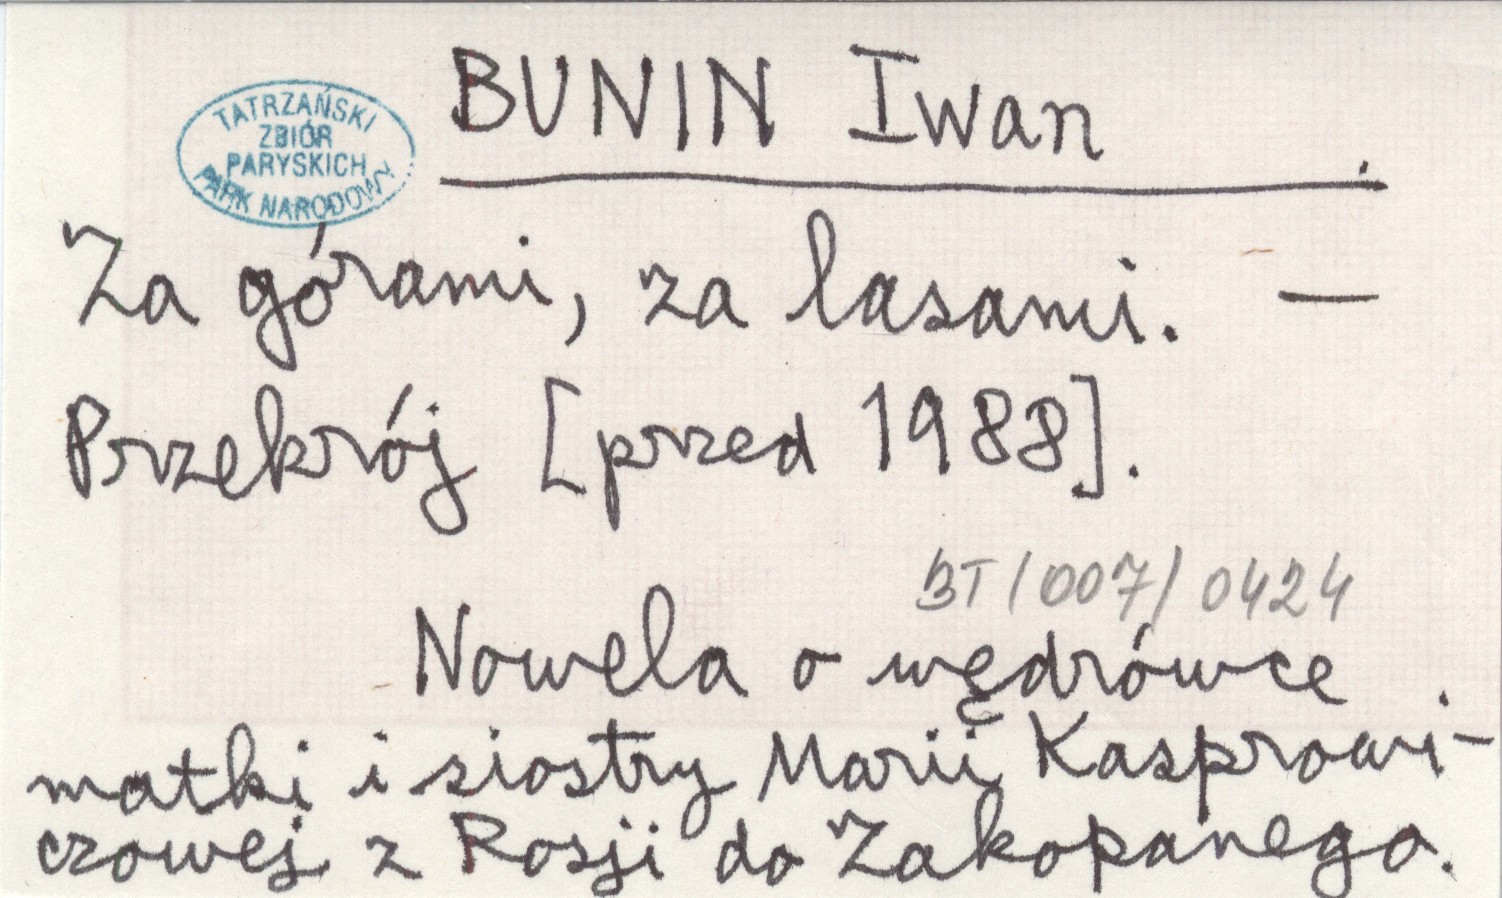 BUNIN Iwan
TATRZAŃSKI
ZBIÓR
PARYSKICH
PARK NARODOWY
Za górami, za lasami. —
Przekrój [przed 1988].
BT/007/0424
Nowela o wędrówce
matki i siostry Marii Kasprowi-
czowej z Rosji do Zakopanego.